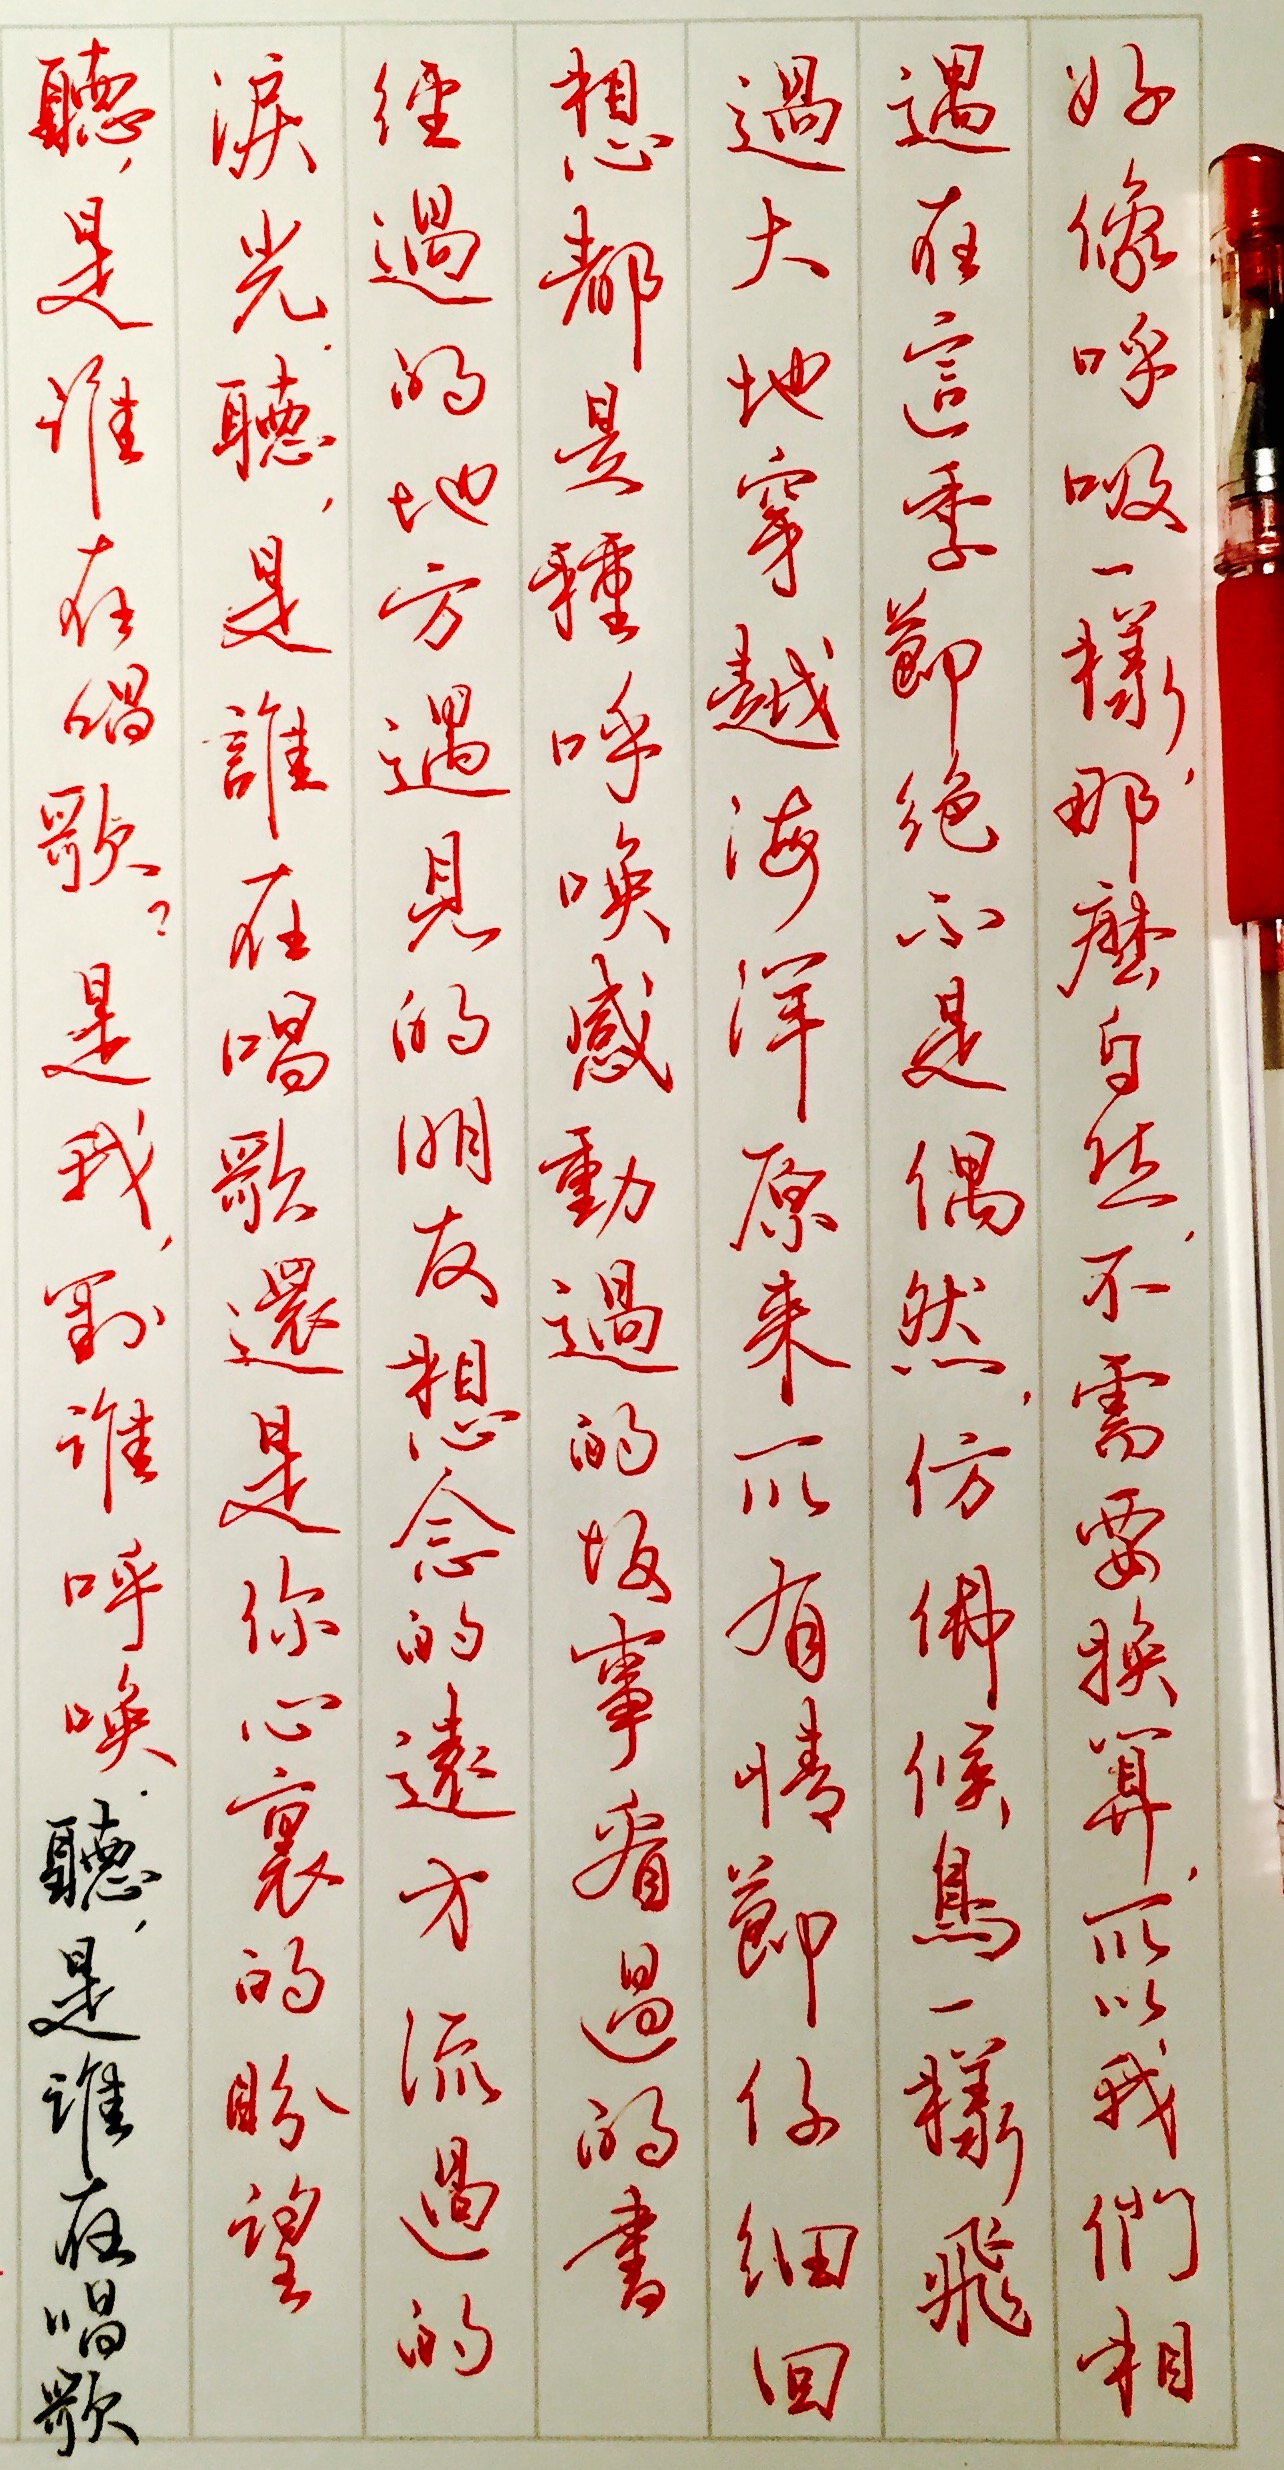 好像呼吸一樣,那麼自然,不需要換算,所以我們相
遇在這季節絕不是偶然,仿佛候鳥一樣飛
過大地穿越海洋原来所有情節仔細回
想都是種呼喚感動過的故事看過的書
經過的地方遇見的朋友想念的遠方流過的
淚光.聽,是誰在唱歌還是你心裏的盼望
聽,是谁在唱歌?是我,對谁呼喚.聽,是谁在唱歌